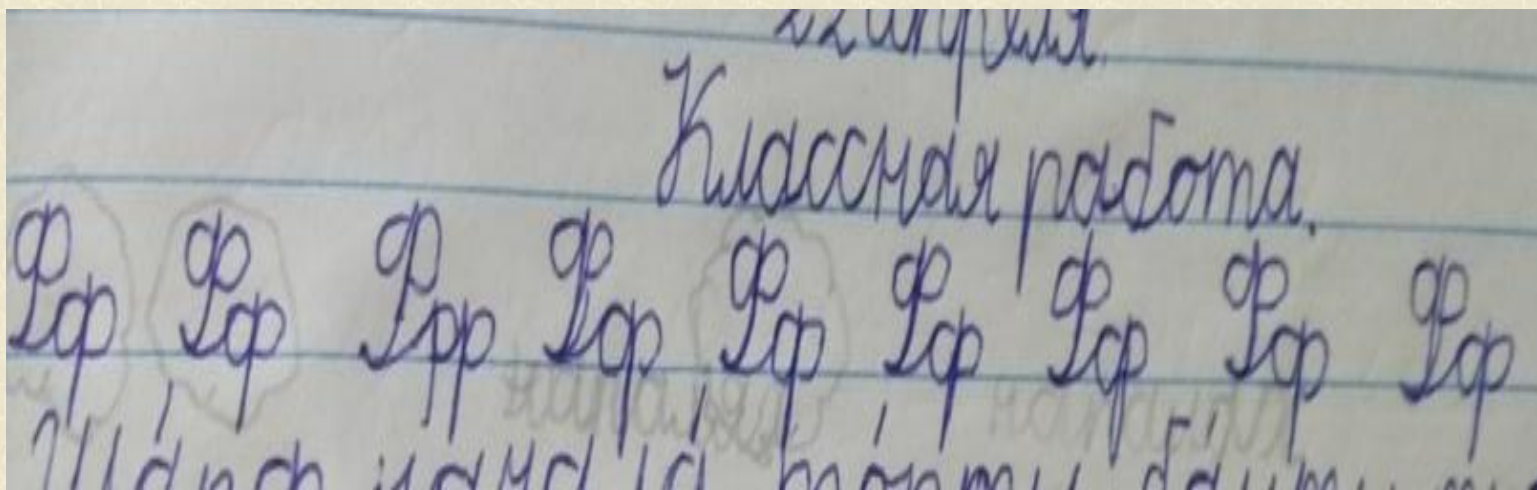 22 апреля.
Классная работа.
Фф Фф Фрр Фф Фф Фф Фф Фф Фф